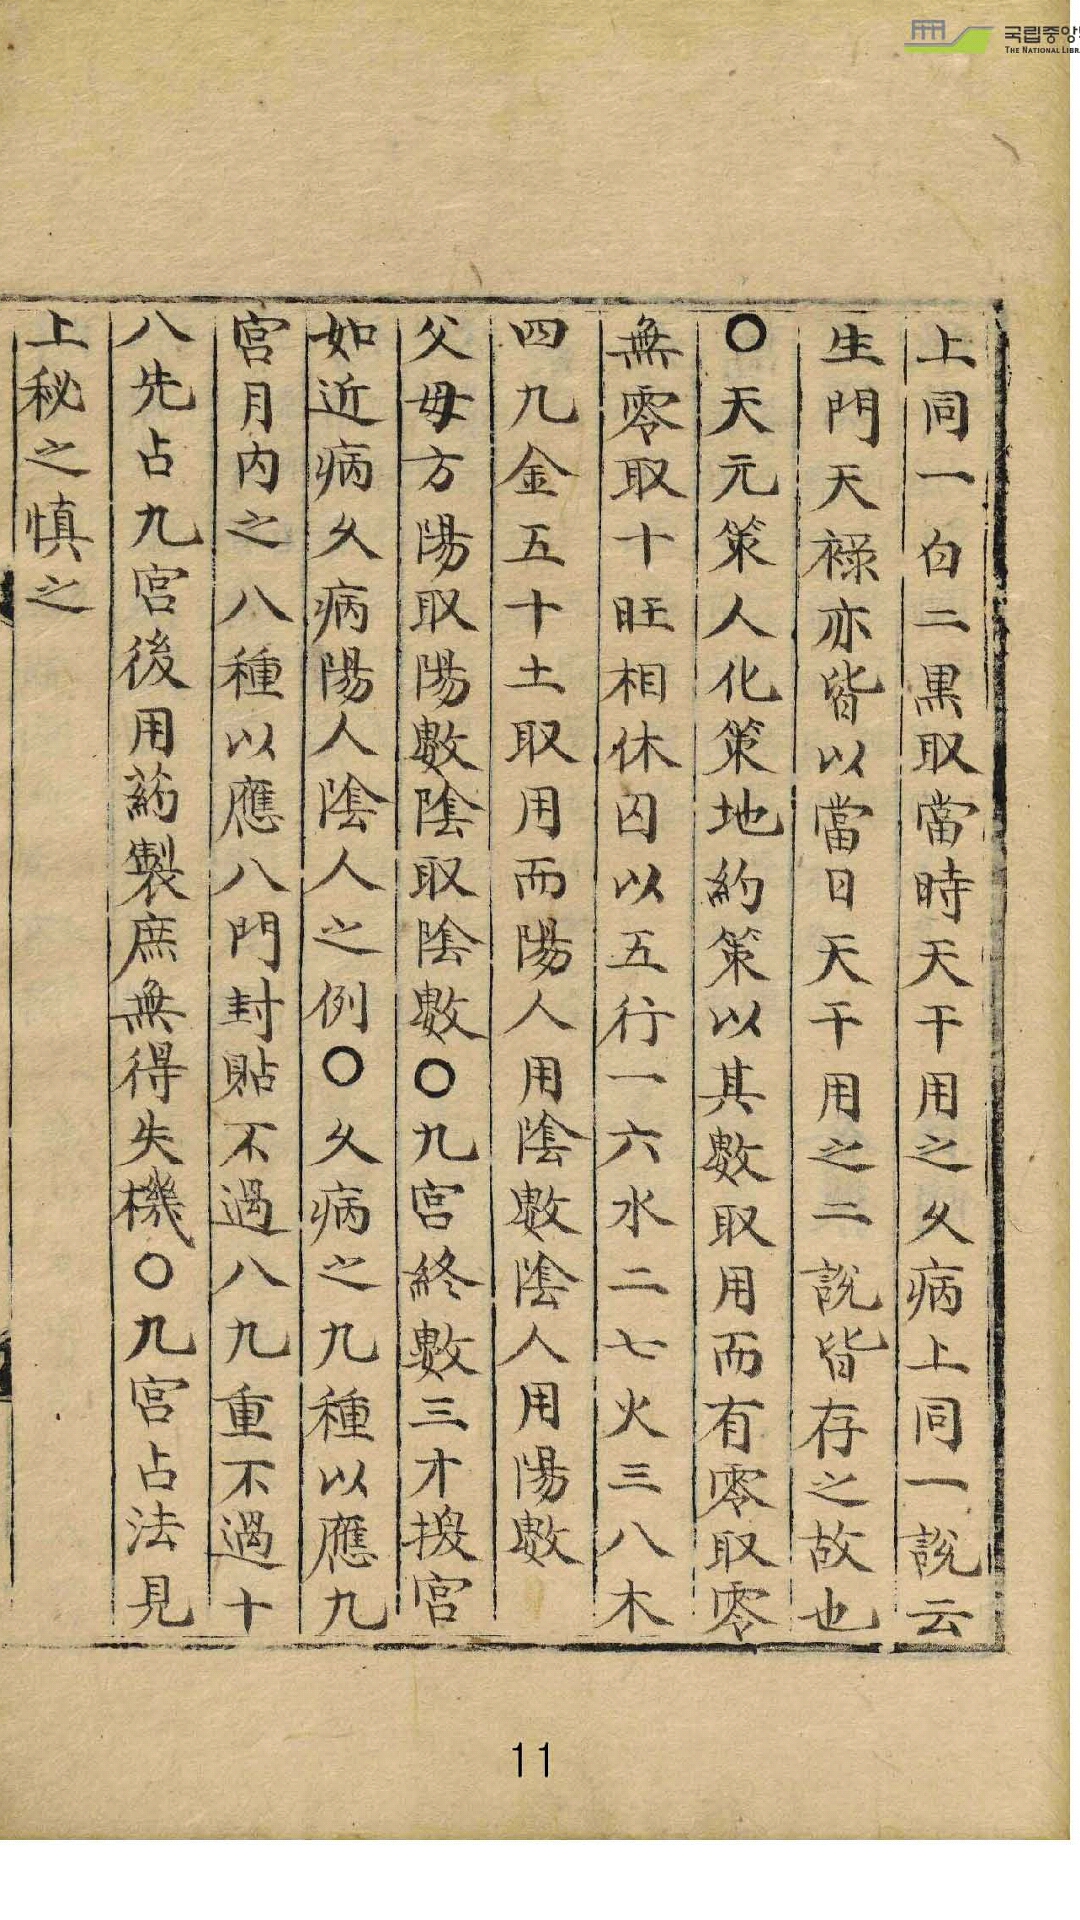 上同一白二黒取當時天干用之久病上同一說云
生門天禄亦皆以當日天干用之二說皆存之故也
〇天元策人化策地約策以其數取用而有零取零
無零取十旺相休囚以五行一六水二七火三八木
四九金五十土取用而陽人用陰數陰人用陽數
父母方陽取陽數陰取陰數〇九宮終數三才換宮
如近病久病陽人陰人之例〇久病之九種以應九
宮月內之八種以應八門封貼不過八九重不過十
八先占九宮後用葯製庶無得失機〇九宮占法見
上秘之慎之
11
국립중앙
THE NATIONAL LIBR